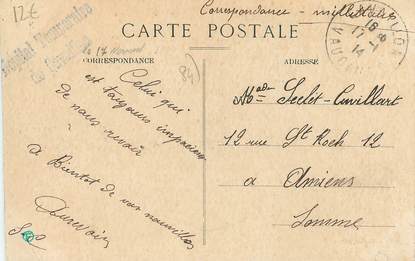 12€
Correspondance - militaire
Hôpital Temporaire
CARTE POSTALE
le 17 Novem
CORRESPONDANCE
ADRESSE
VAUCLUSE
16
17-11
14
84
Celui qui
est toujours impacient
de vous revoir
a Bientot de vos nouvelles
Aurevoir
Mme Seclet-Cuvillart
12 rue St Roch 12
a Amiens
Somme